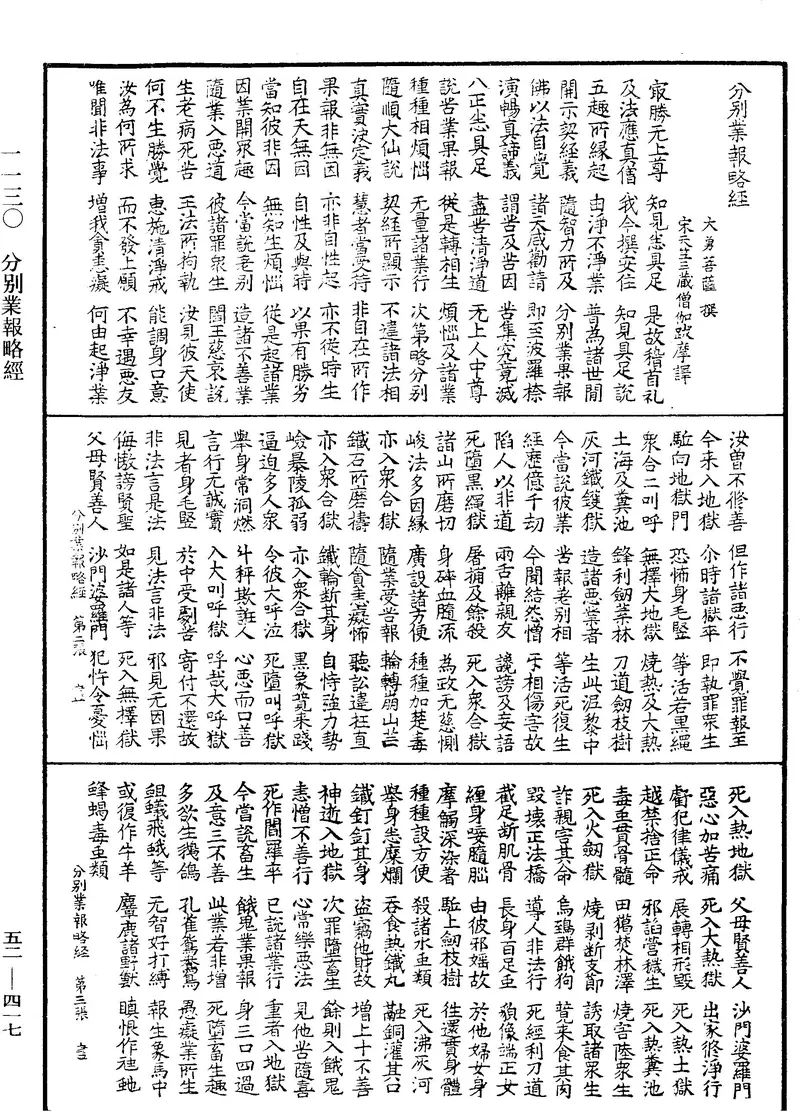 分別業報略經
大勇菩薩 撰
宋天竺三藏僧伽跋摩譯
㝡勝无上尊 知見悉具足 是故稽首礼
及法應真僧 我今撰安住 知見具足說
五趣所緣起 由淨不淨業 普為諸世間
開示契經義 隨智力所及 分別業果報
佛以法自覺 諸天咸勸請 即至波羅㮈
演暢真諦義 謂苦及苦因 苦集究竟滅
八正悉具足 盡苦清淨道 无上人中尊
說苦業果報 從是轉相生 煩惱及諸業
種種相煩惱 无量諸業行 次第略分別
隨順大仙說 契經所顯示 不違諸法相
真實決定義 慧者當受持 非自在所作
果報非無因 亦非自性起 亦不從時生
自在天無因 自性及與時 以果有勝劣
當知彼非因 無知生煩惱 從是起諸業
因業開眾趣 今當說差別 造諸不善業
隨業入惡道 彼諸罪眾生 閻王慈哀說
生老病死苦 王法所拘執 汝見彼天使
何不生勝覺 惠施清淨戒 能調身口意
汝為何所求 而不發上願 不幸遇惡友
唯聞非法事 增我貪恚癡 何由起淨業
汝曾不修善 但作諸惡行 不覺罪報至
今來入地獄 尒時諸獄卒 即執罪眾生
駈向地獄門 恐怖身毛竪 等活若黑繩
眾合二叫呼 無擇大地獄 燒熱及大熱
土海及糞池 鋒利劒葉林 刀道劒枝樹
灰河鐵鑊獄 造諸惡業者 生此泥黎中
今當說彼業 苦報差別相 等活死復生
經歷億千劫 今聞結怨憎 㸦相傷害故
陷人以非道 兩舌離親友 讒謗及妄語
死墮黑繩獄 屠捕及餘殺 死入眾合獄
諸山所磨切 身碎血髓流 為政无慈惻
峻法多因緣 廣設諸方便 種種加楚毒
亦入眾合獄 隨業受苦報 輪轉崩山苦
鐵石所磨擣 隨貪恚癡怖 聽訟違枉直
亦入眾合獄 鐵輪斷其身 自恃強力勢
嶮暴陵孤弱 亦入眾合獄 黑象覺來踐
逼迫多人眾 令彼大呼泣 死墮叫呼獄
舉身常洞燃 斗秤欺誑人 心惡而口善
言行无誠實 入大叫呼獄 呼哉大呼獄
見者身毛竪 於中受劇苦 寄付不還故
非法言是法 見法言非法 邪見无因果
侮慠謗賢聖 如是諸人等 死入無擇獄
父母賢善人 沙門婆羅門 犯忤令憂惱
分別業報略經 第二張
死入熱地獄 父母賢善人 沙門婆羅門
惡心加苦痛 死入大熱獄 出家修淨行
虧犯律儀戒 展轉相形毀 死入熱土獄
越禁捨正命 邪諂營穢生 死入熱糞池
毒虫貫骨髓 田獵焚林澤 燒害陸眾生
死入火劒獄 燒剝斷支節 誘取諸眾生
詐親害其命 烏鵄群餓狗 競來食其肉
毀壞正法橋 導人非法行 死經利刀道
截足斷肌骨 長身百足虫 䫉像端正女
緾身唼髓腦 由彼邪婬故 於他婦女身
摩觸深染著 駈上劒枝樹 往還貫身體
種種設方便 殺諸水虫類 死入沸灰河
舉身悉糜爛 吞食熱鐵丸 融銅灌其口
鐵釘釘其身 盜竊他財故 增上十不善
神逝入地獄 次罪墮畜生 餘則入餓鬼
恚憎不善行 心常樂惡法 見他苦隨喜
死作閻羅卒 已說諸業行 重者入地獄
今當說畜生 餓鬼業果報 身三口四過
及意三不善 此業若非增 死墮畜生趣
多欲生鵝鴿 孔雀鴛鴦鳥 愚癡業所生
蛆蟻飛蛾等 无智好打縛 報生象馬中
或復作牛羊 麞鹿諸野獸 瞋恨作虺虵
蜂蝎毒虫類
分別業報略經 第三張
一一三〇 分別業報略經
五二—四一七